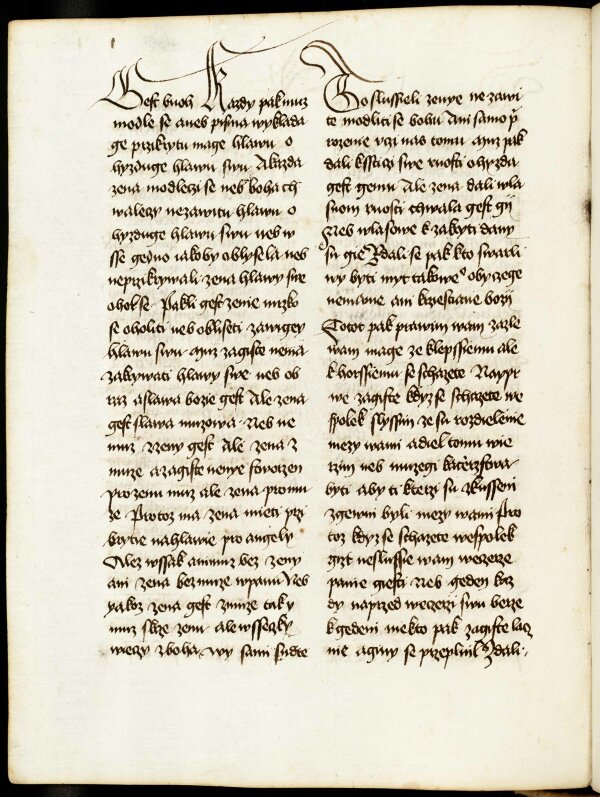 Gest buoh Kazdy pak muz
modle se aneb pisma wyklada
ge przikrytu mage hlawu o
hyzduge hlawu swu A kazda
zena modleczi se neb boha ch
walezy nezawitu hlawu o
hyzduge hlawu swu neb w
sse gedno iakoby oblysela neb
neprzikrywali zena hlawy swe
ohol se Pakli gest zenie mrzko
se oholiti neb oblyseti zawigey
hlawu swu Muz zagiste nema
zakrywati hlawy swe neb ob
raz a slawa bozie gest Ale zena
gest slawa muzowa Neb ne
muz z zeny gest Ale zena z
muze a zagiste nenye stworzen
pro zenu muz ale zena pro mu
ze Protoz ma zena mieti przi
krytie na hlawie pro angely
Awez wssak ani muz bez zeny
ani zena bez muze w panu Neb
yakoz zena gest z muze taky
muz skrze zenu ale wsseczky
weczy z boha wy sami sudte
Go slussieli zenye ne zawi
te modliti se bohu Ani samo p
rozenie vczi nas tomu muz pak
dali kssticzi swe ruosti ohyzda
gest gemu Ale zena dali wla
suom ruosti chwala gest gij
Neb wlasowe k zakyti dany
su gie Zdali se pak kto swarli
wy byti my takoweho obyczege
nemame ani krzestiane bozij
Totot pak prawim wam zazle
wam mage ze k lepssiemu ale
k horssiemu se schazete Naypr
we zagiste kdyz se schazete we
spolek slyssim ze su rozdielenie
mezy wami a diel tomu wie
rzim neb musegi kaczierzstwa
byti aby ti kterzi su zkusseni
zgewni byli mezy wami Pro
toz kdyz se schazete wespolek
gizt neslussie wam weczerze
panie giesti Neb geden kaz
dy naprzed weczerzi swu berze
k gedeni niekto pak zagiste lacz
nie a giny se przepiwil Zdali